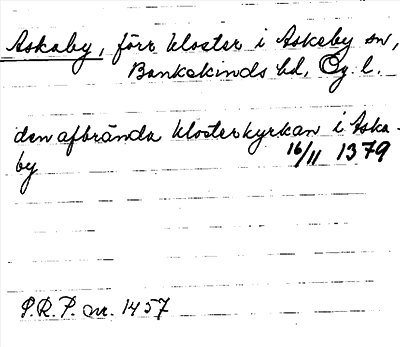 Askaby, förr kloster i Askeby sn,
Bankekinds hd, Ög. l.
den afbrända klosterkyrkan i Aska-
by 16/11 1379
S.R.P. nr. 1457